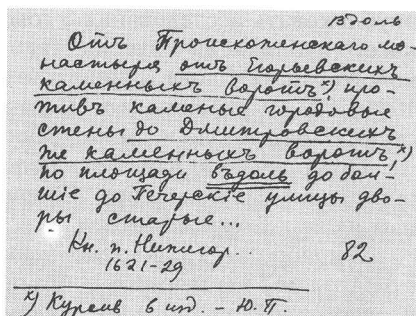 вдоль
Отъ Происхоженскаго мо-
настыря отъ Егорьевскихъ
каменныхъ воротъ х) про-
тивъ каменые городовые
стены до Дмитровскихъ
же каменныхъ воротъ, х)
по площади въдоль до боль-
шіе до Печерскіе улицы дво-
ры старые...
Кн. п. Нижегор.. 82
1621-29
х) Курсив 6 изд. - Ю.П.